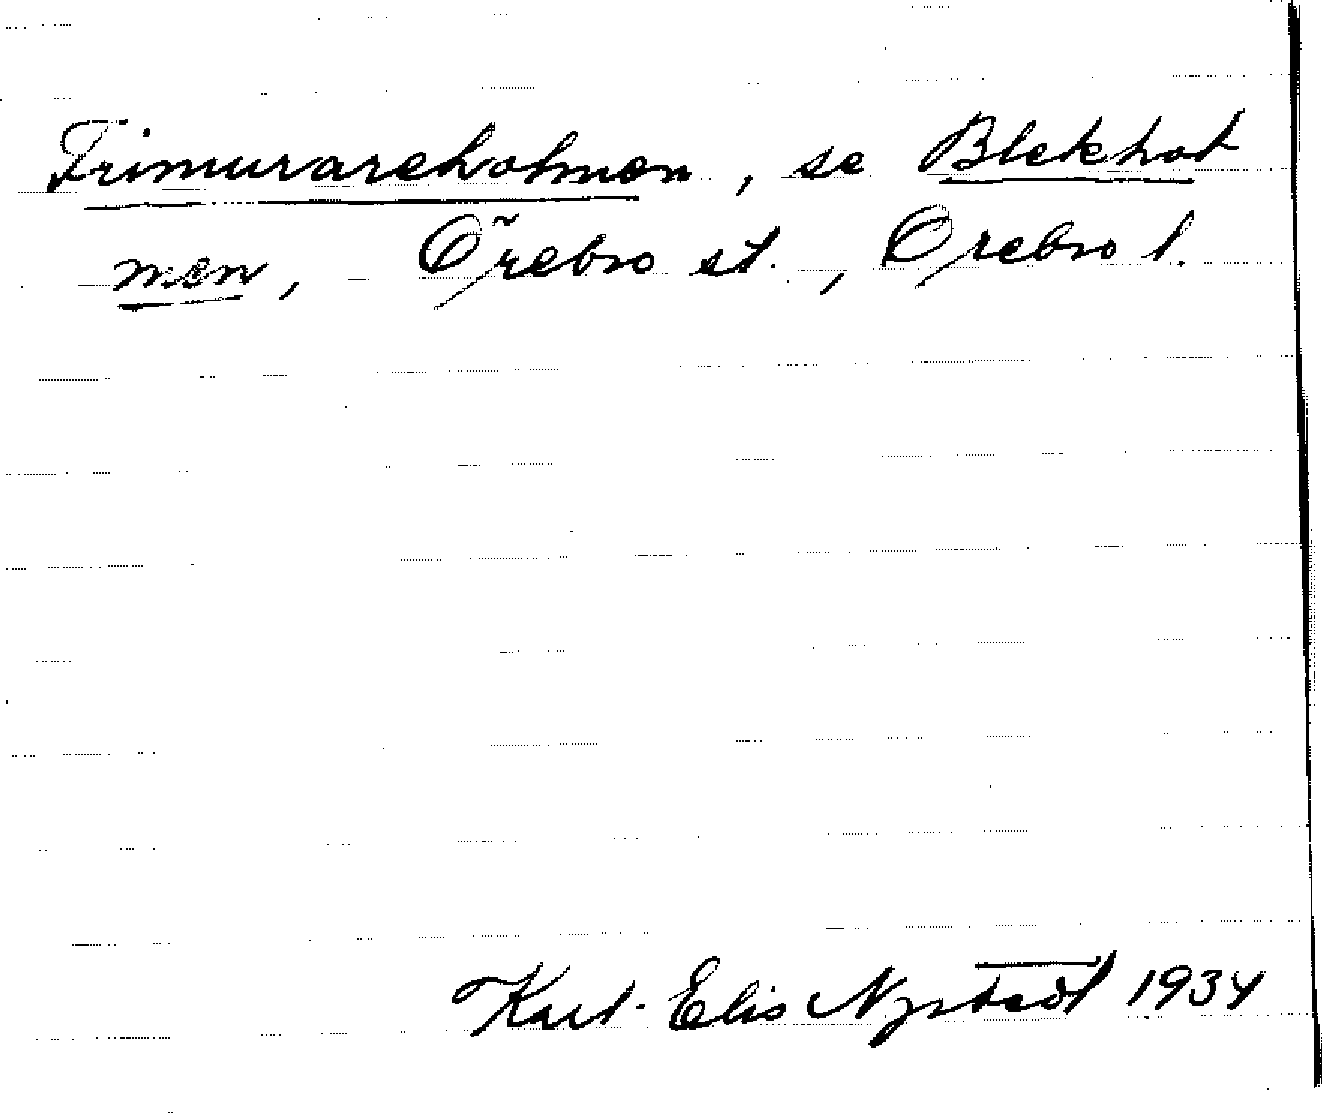 Frimurareholmen, se Blekhol
men, Örebro st., Örebro l.
Karl-Elis Nystedt 1934